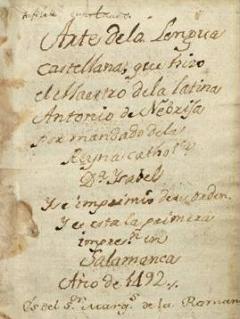 Arte de la Lengua
Castellana, que hizo
el Maestro de la latina
Antonio de Nebrija
por mandado de la
Reyna Catholᶜᵃ
Dª Ysabel
Y se imprimio de su orden.
Y es esta la primera
impresⁿ en
Salamanca
Año de 1492.
Es del sʳ Marqˢ de la Roman